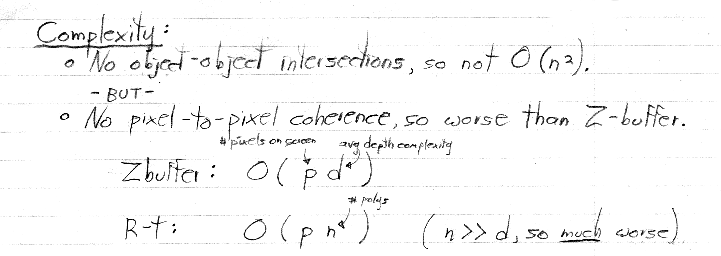 Complexity:
o No object-object intersections, so not O(n²).
- BUT -
o No pixel-to-pixel coherence, so worse than Z-buffer.
# pixels on screen avg depth complexity
Zbuffer: O(p d)
# polys
R-t: O(p n) (n>>d, so much worse)